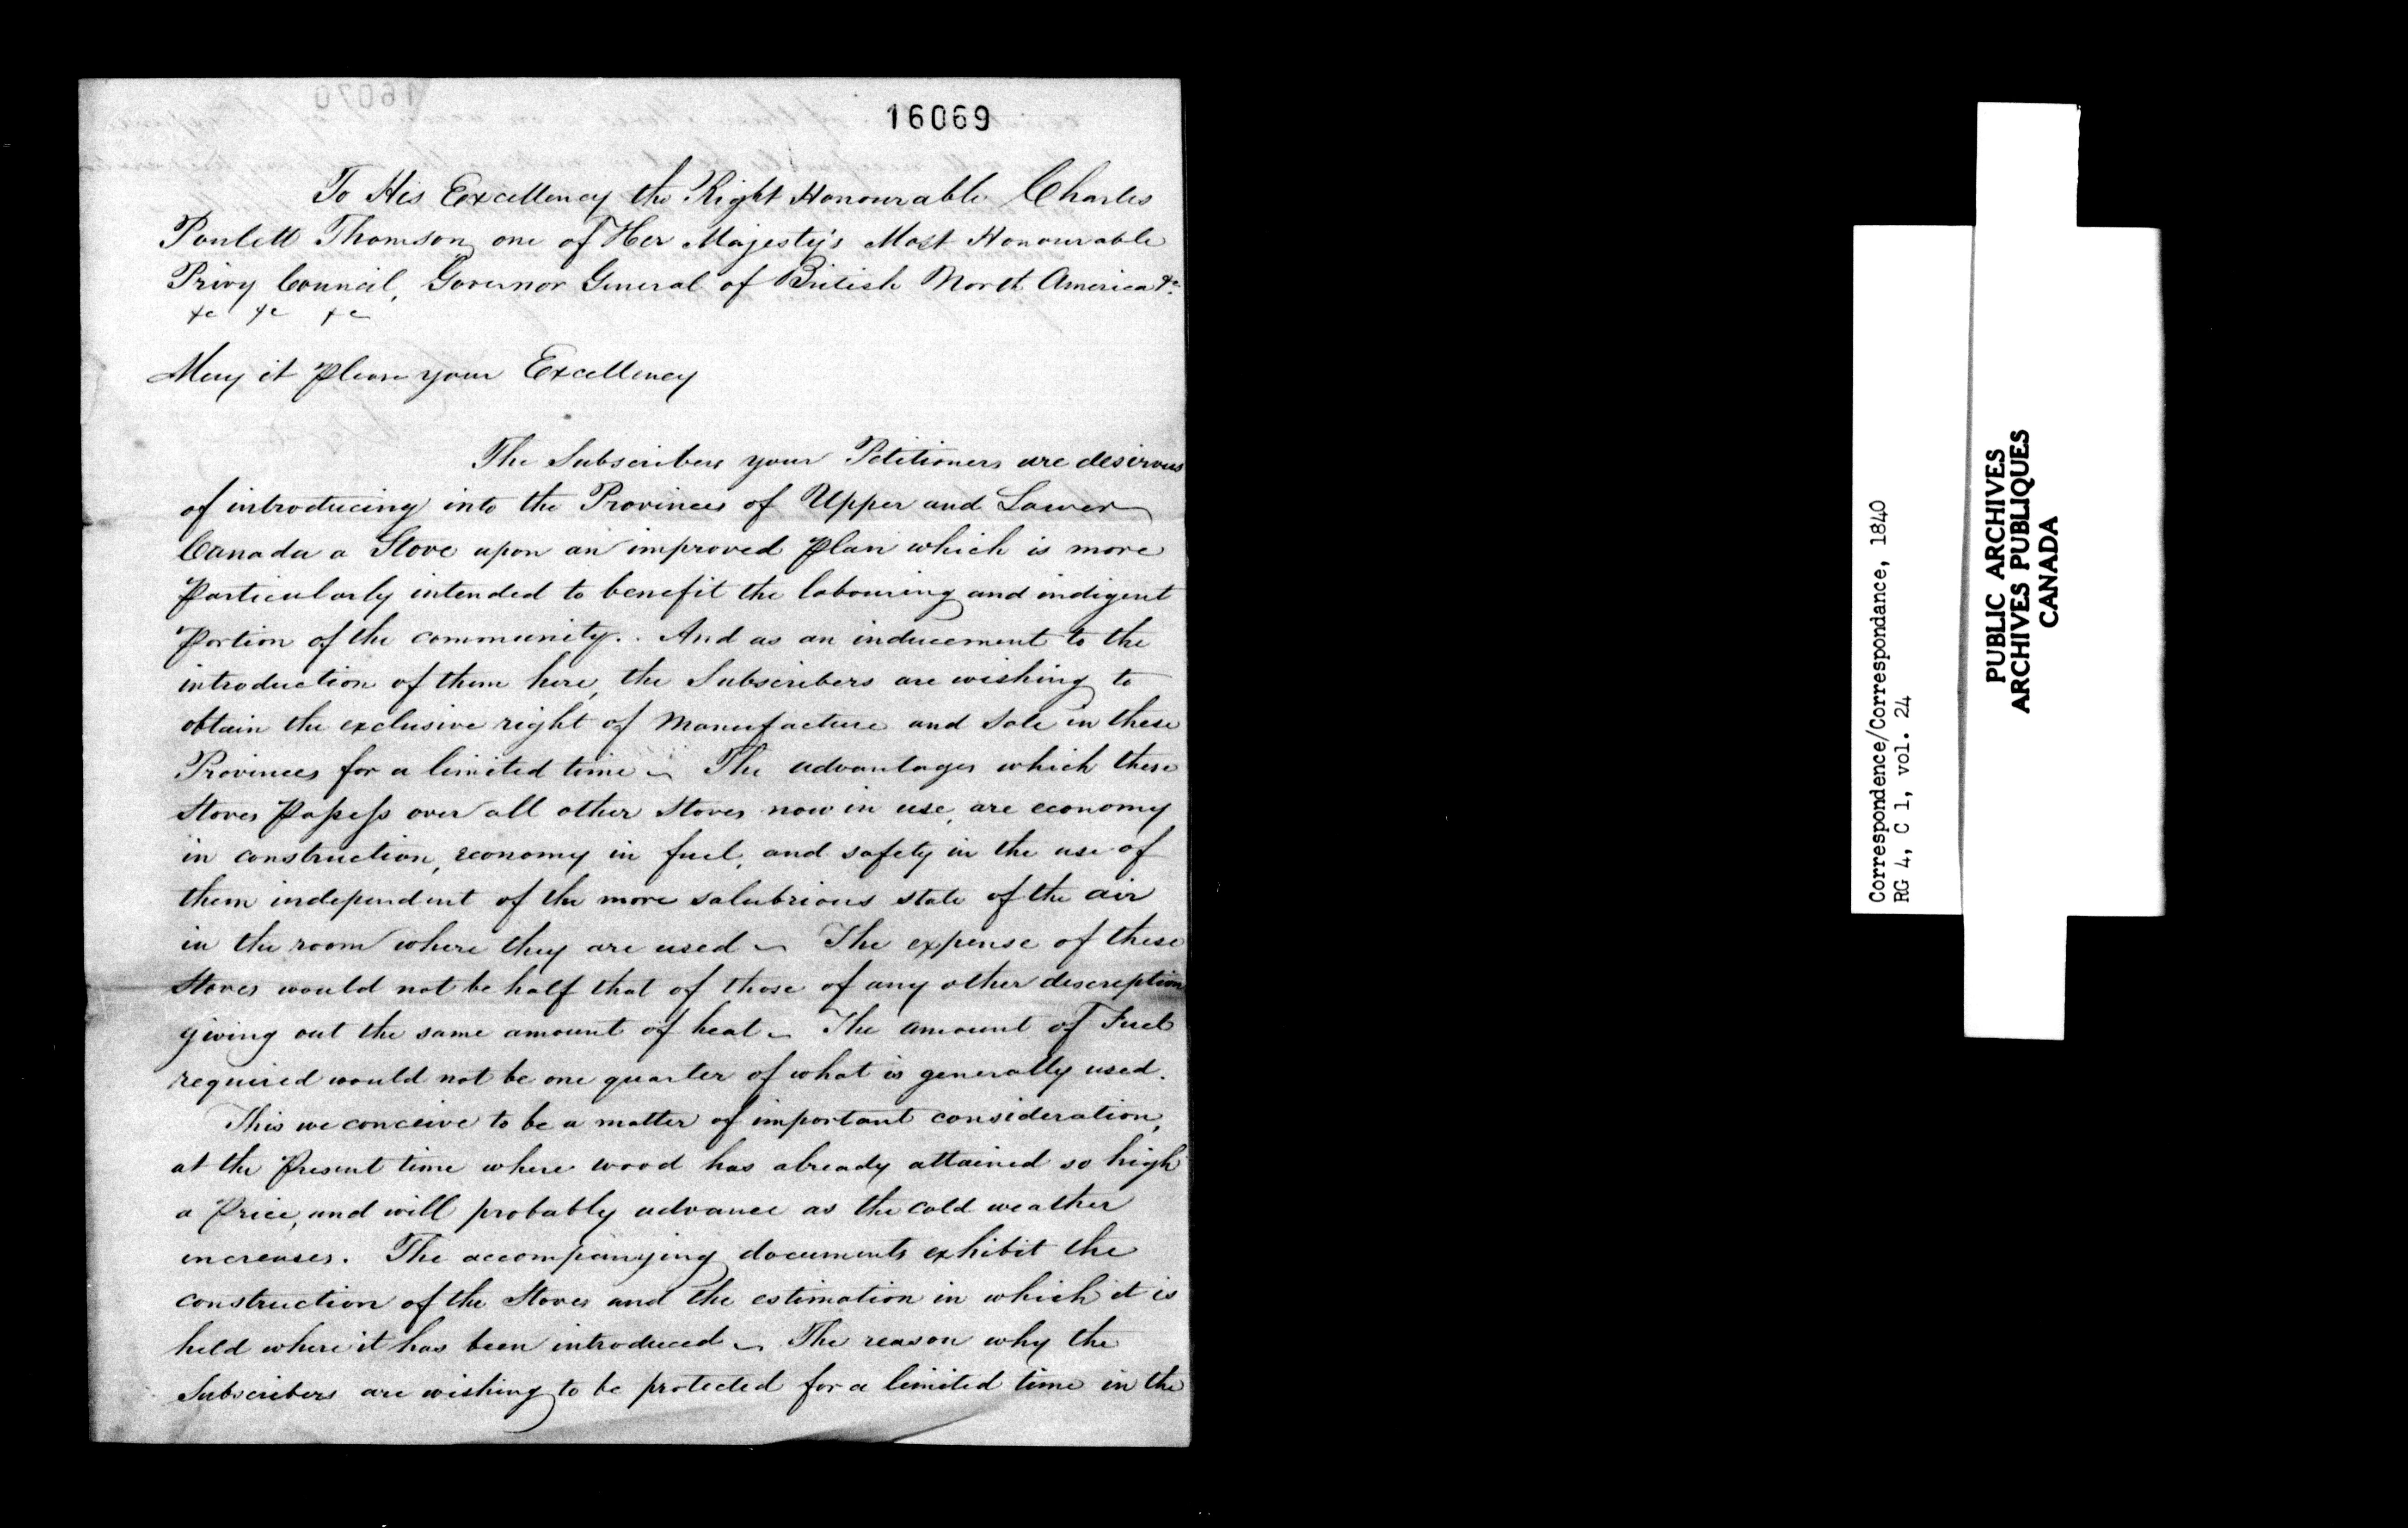 16069
To His Excellency the Right Honourable Charles
Poulett Thomson, one of Her Majesty's Most Honourable
Privy Council, Governor General of British North America &c.
&c &c &c
May it Please your Excellency
The Subscribers your Petitioners are desirous
of introducing into the Provinces of Upper and Lower
Canada a Stove upon an improved Plan which is more
Particularly intended to benefit the labouring and indigent
Portion of the community. . And as an inducement to the
introduction of them here, the Subscribers are wishing to
obtain the exclusive right of Manufacture and Sale in these
Provinces for a limited time ~ The advantages which these
Stoves Possess over all other Stoves now in use, are economy
in construction, economy in fuel, and safety in the use of
them independent of the more salubrious state of the air
in the room where they are used ~ The expense of these
Stoves would not be half that of those of any other discreption
giving out the same amount of heat ~ The amount of Fuel
required would not be one quarter of what is generally used.
This we conceive to be a matter of important consideration,
at the Present time where wood has already attained so high
a Price, and will probably advance as the cold weather
increases. The accompanying documents exhibit the
construction of the Stoves and the estimation in which it is
held where it has been introduced ~ The reason why the
Subscribers are wishing to be protected for a limited time in the
Correspondence/Correspondance, 1840
RG 4, C 1, vol. 24
PUBLIC ARCHIVES
ARCHIVES PUBLIQUES
CANADA